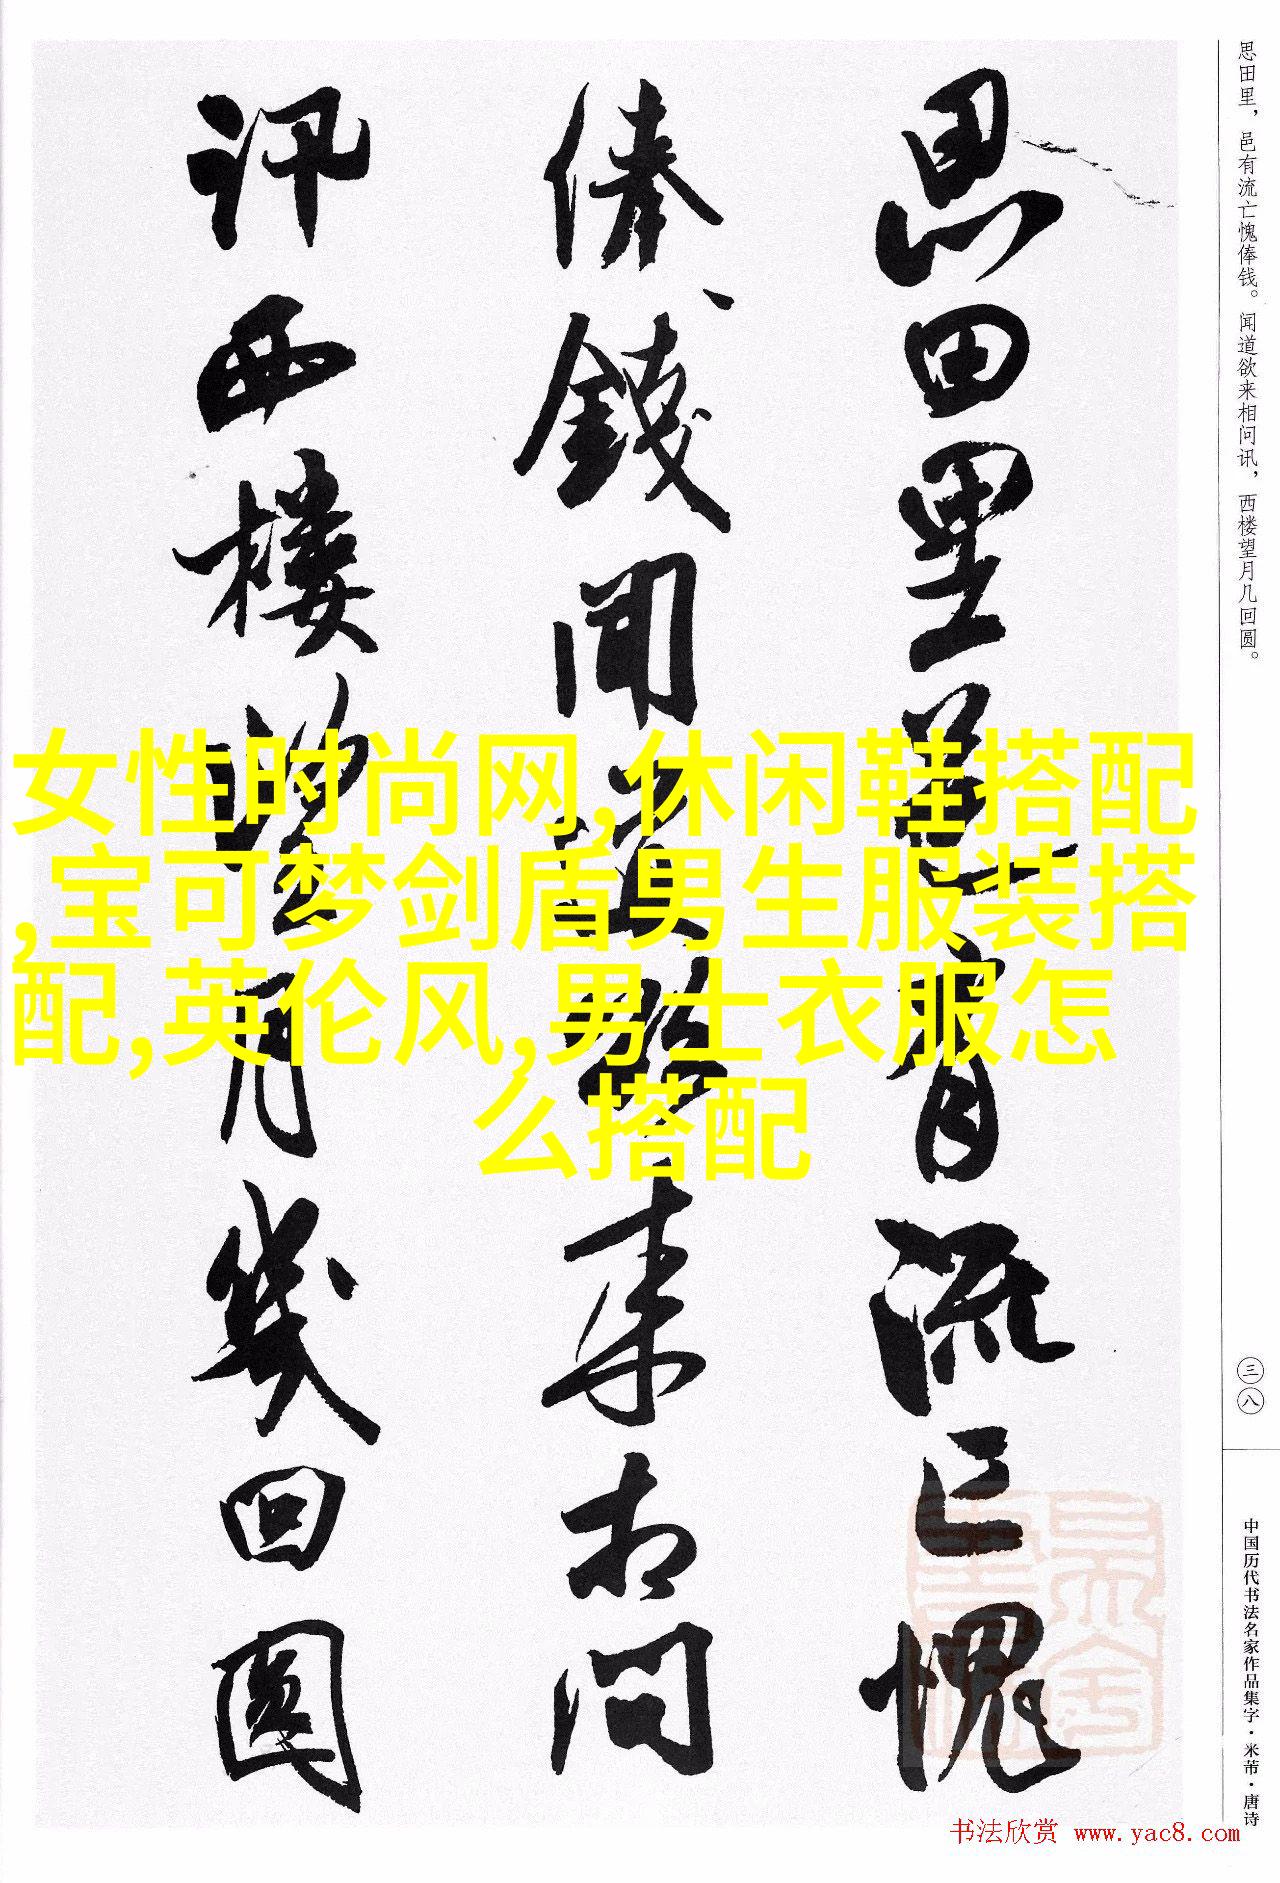 思田里，邑有流亡愧俸钱。闻道欲来相问讯，西楼望月几回圆。
思田里邑有流亡愧
俸錢聞道欲来相問
訊西樓望月幾回圓
女性时尚网,休闲鞋搭配
,宝可梦剑盾男生服装搭
配,英伦风,男士衣服怎
么搭配
三八
中国历代书法名家作品集字·米芾·唐诗
书法欣赏 www.yac8.com